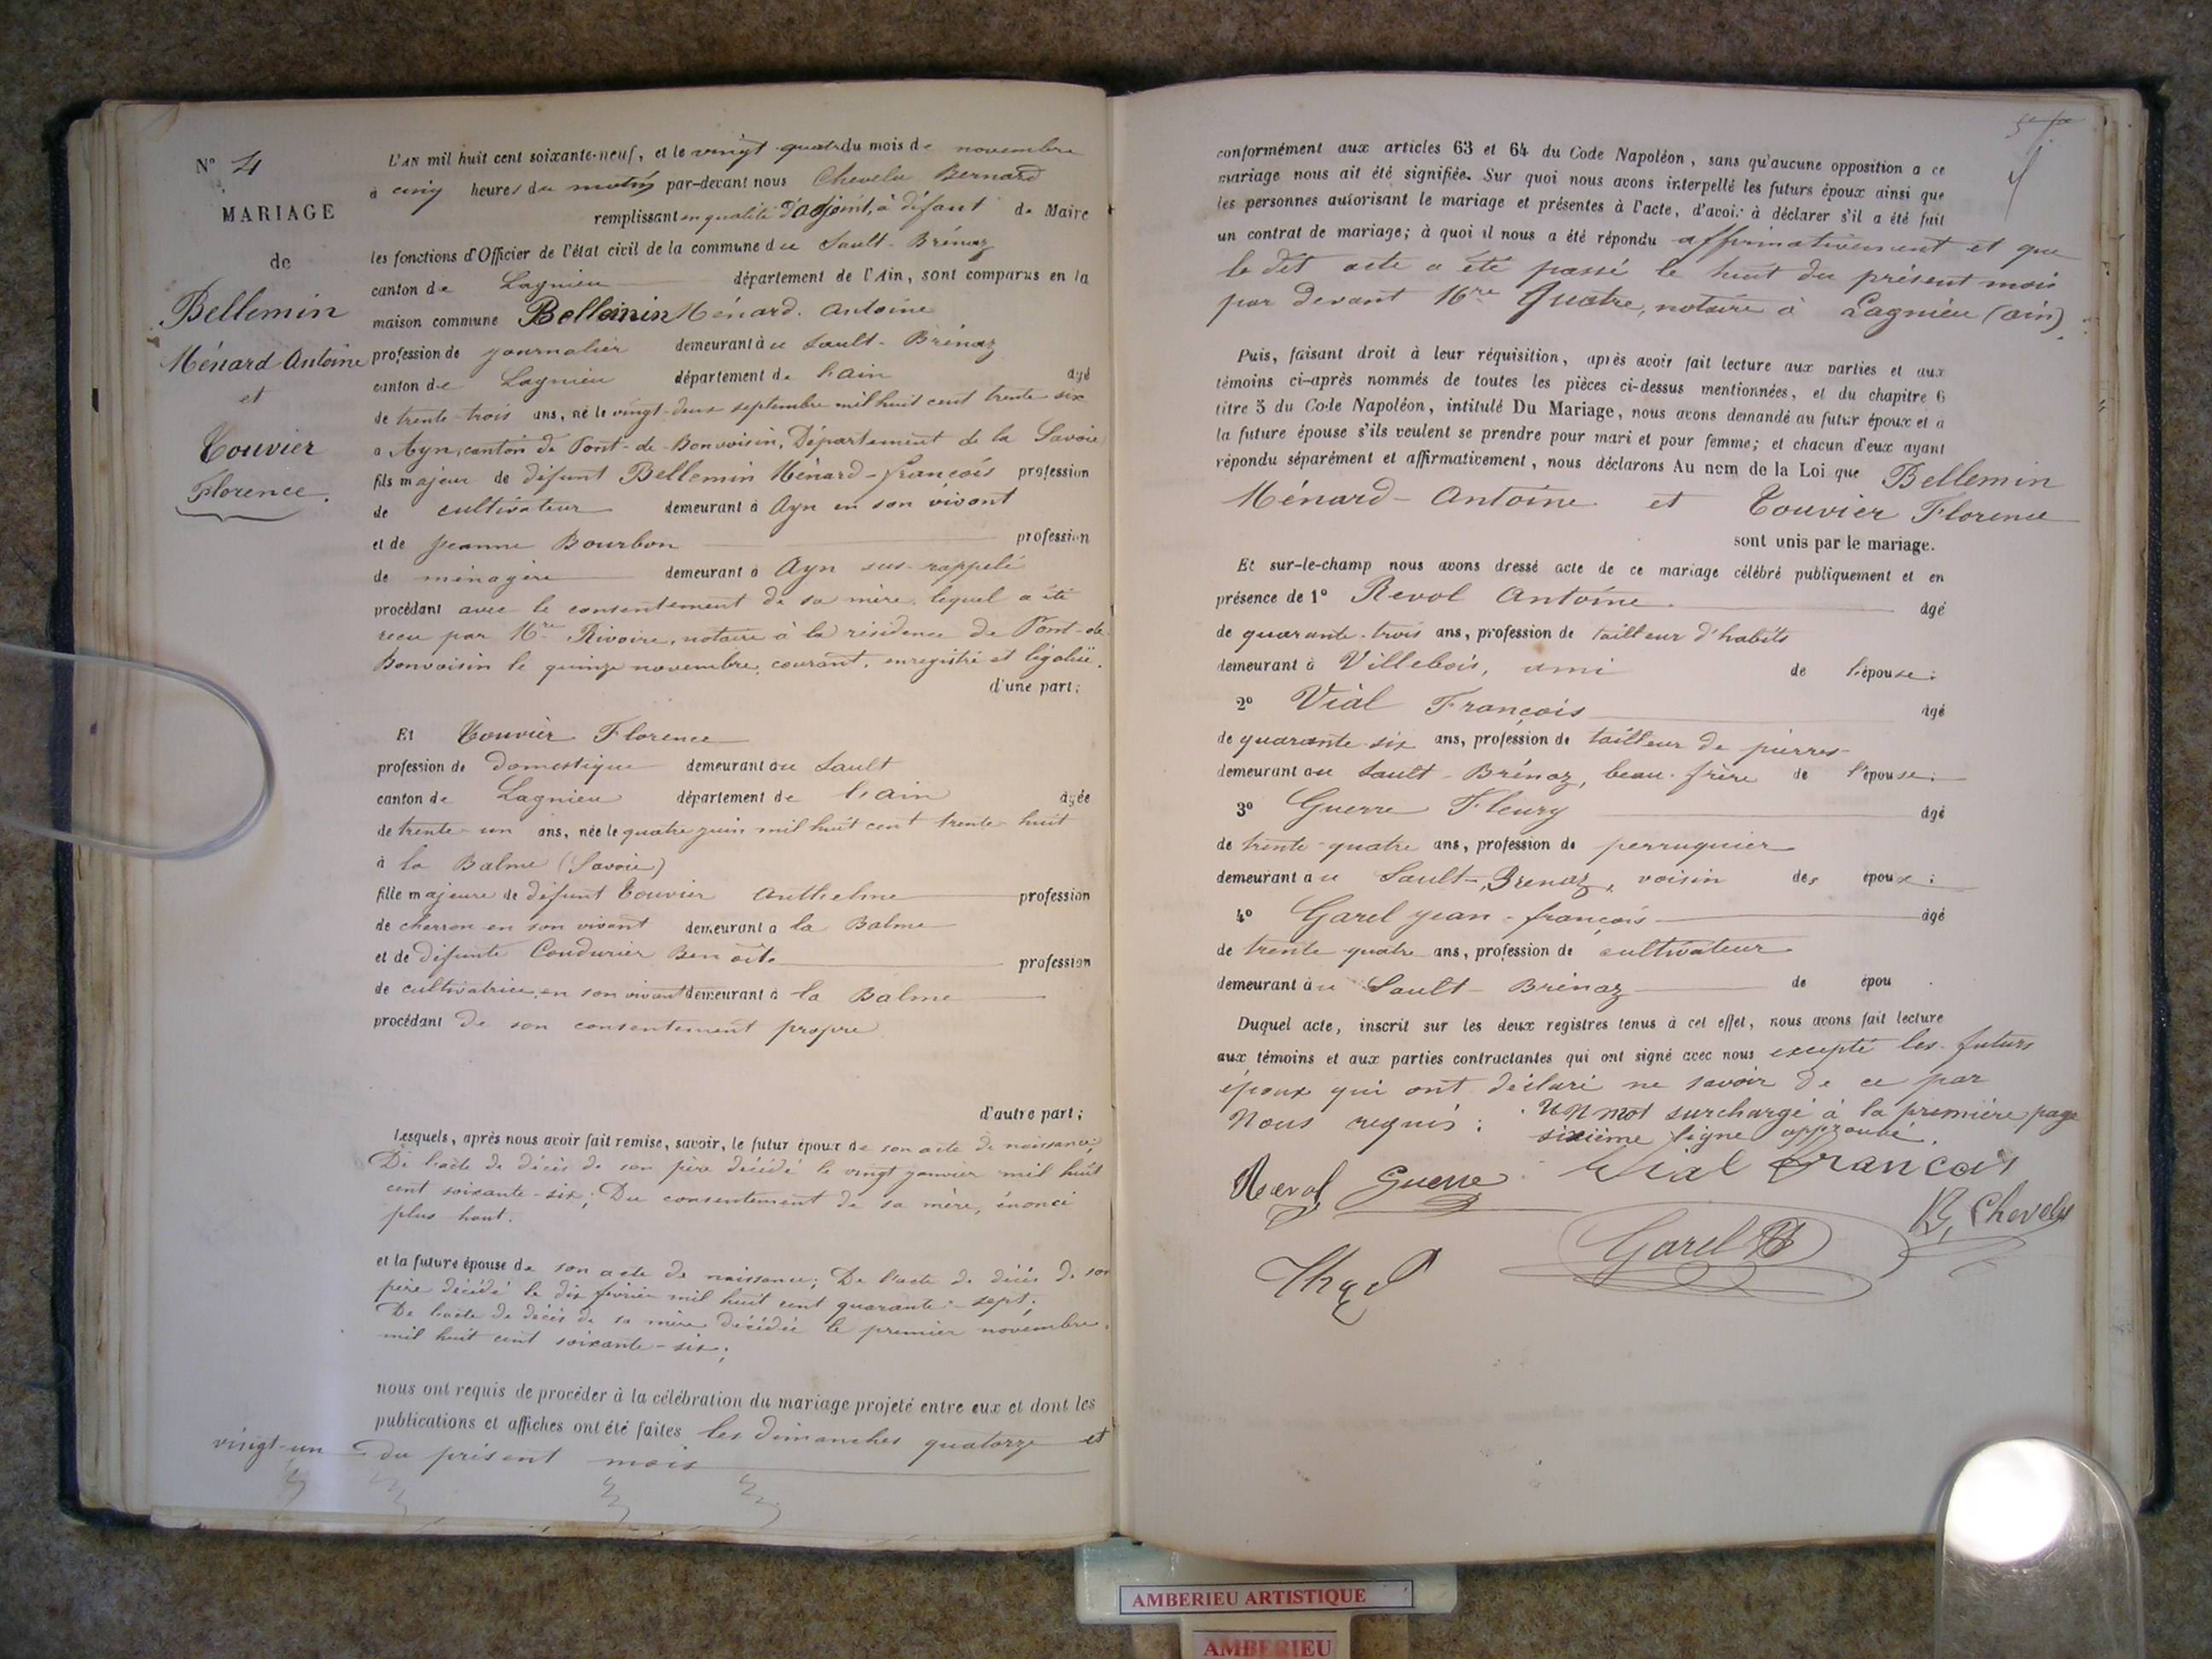 N° 4
MARIAGE
de
Bellemin
Ménard Antoine
et
Touvier
Florence.
L'AN mil huit cent soixante-neuf, et le vingt-quatre du mois de novembre
à cinq heures du matin par-devant nous Chevelu Bernard
remplissant en qualité d'adjoint, à défaut de Maire
les fonctions d'Officier de l'état civil de la commune du Sault-Brénaz
canton de Lagnieu département de l'Ain, sont comparus en la
maison commune Bellemin Ménard. Antoine
profession de journalier demeurant à u Sault-Brénaz
canton de Lagnieu département de l'ain âgé
de trente-trois ans, né le vingt-deux septembre mil huit cent trente six
à Ayn, canton de Pont-de-Bonvoisin, Département de la Savoie
fils majeur de défunt Bellemin Ménard-françois profession
de cultivateur demeurant à Ayn en son vivant
et de Jeanne Bourbon profession
de ménagère demeurant à Ayn sus-rappelé
procédant avec le consentement de sa mère, lequel a été
recu par Mre Rivoire, notaire à la résidence de Pont-de-
Bonvoisin le quinze novembre, courant, enregistré et légalisé.
d'une part;
Et Touvier Florence
profession de domestique demeurant au Sault
canton de Lagnieu département de l'ain âgée
de trente-un ans, née le quatre juin mil huit cent trente-huit
à la Balme (Savoie)
fille majeure de défunt Touvier Anthelme profession
de charron en son vivant demeurant à la Balme
et de défunte Condurier Benoîte profession
de cultivatrice, en son vivant demeurant à la Balme
procédant de son consentement propre
d'autre part;
Lesquels, après nous avoir fait remise, savoir, le futur époux de son acte de naissance;
De l'acte de décès de son père décédé le vingt janvier mil huit
cent soixante-six; Du consentement de sa mère, énoncé
plus haut.
et la future épouse de son acte de naissance; De l'acte de décès de son
père décédé le dix février mil huit cent quarante-sept;
De l'acte de décès de sa mère décédée le premier novembre
mil huit cent soixante-six;
nous ont requis de procéder à la célébration du mariage projeté entre eux et dont les
publications et affiches ont été faites les dimanches quatorze et
vingt-un du présent mois
conformément aux articles 63 et 64 du Code Napoléon, sans qu'aucune opposition a ce
mariage nous ait été signifiée. Sur quoi nous avons interpellé les futurs époux ainsi que
les personnes autorisant le mariage et présentes à l'acte, d'avoir à déclarer s'il a été fait
un contrat de mariage; à quoi il nous a été répondu affirmativement et que
le dit acte a été passé le huit du présent mois
par devant Mre Quatre, notaire à Lagnieu (ain).
Puis, faisant droit à leur réquisition, après avoir fait lecture aux parties et aux
témoins ci-après nommés de toutes les pièces ci-dessus mentionnées, et du chapitre 6
titre 5 du Code Napoléon, intitulé Du Mariage, nous avons demandé au futur époux et à
la future épouse s'ils veulent se prendre pour mari et pour femme; et chacun d'eux ayant
répondu séparément et affirmativement, nous déclarons Au nom de la Loi que Bellemin
Ménard-Antoine et Touvier Florence
sont unis par le mariage.
Et sur-le-champ nous avons dressé acte de ce mariage célébré publiquement et en
présence de 1° Revol Antoine âgé
de quarante-trois ans, profession de tailleur d'habits
demeurant à Villebois, ami de l'épouse;
2° Vial François âgé
de quarante-six ans, profession de tailleur de pierres
demeurant au Sault-Brénaz, beau-frère de l'épouse;
3° Guerre Fleury âgé
de trente-quatre ans, profession de perruquier
demeurant au Sault-Brénaz, voisin des époux;
4° Garel Jean-françois âgé
de trente quatre ans, profession de cultivateur
demeurant à u Sault-Brénaz de épou
Duquel acte, inscrit sur les deux registres tenus à cet effet, nous avons fait lecture
aux témoins et aux parties contractantes qui ont signé avec nous excepté les futurs
époux qui ont déclaré ne savoir de ce par
Nous requis: Un mot surchargé à la première page
sixième ligne approuvé.
Revol Guerre Vial francois
B. Chevelu
Garel
AMBERIEU ARTISTIQUE
AMBERIEU